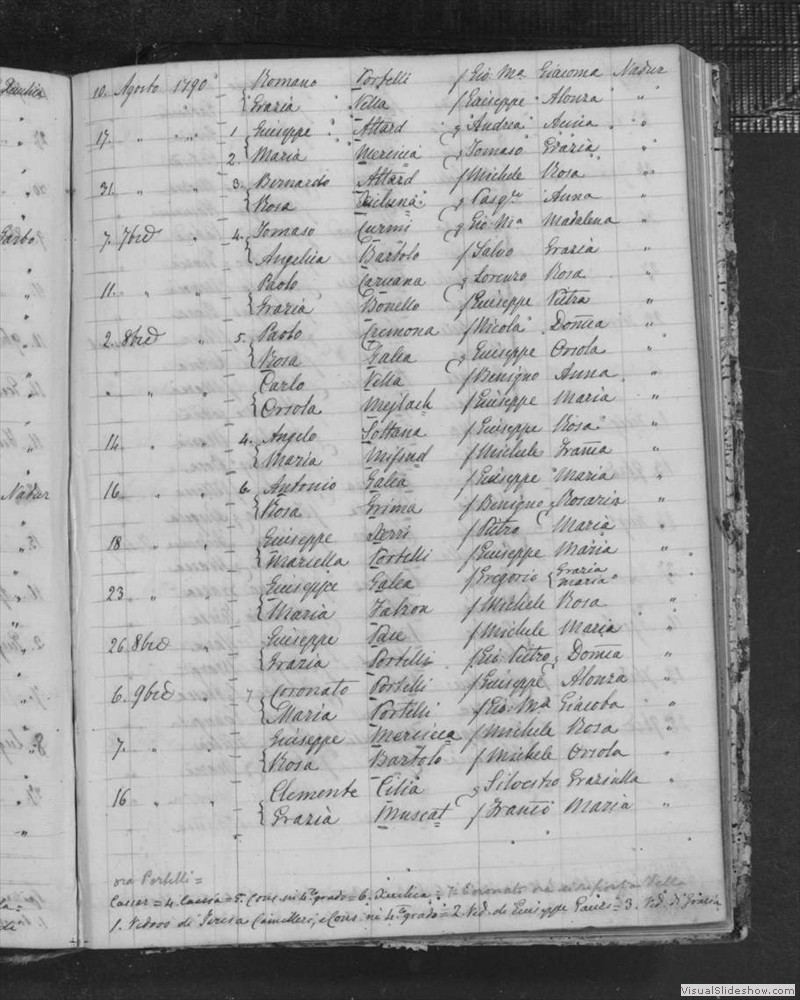 10. Agosto 1790 Romano Portelli f Gio Ma Giacoma Nadur
Grazia Vella f Giuseppe Alonza "
17. " " 1 Giuseppe Attard q Andrea Anna "
2. Maria Mericica q Tomaso Grazia "
31. " " 3. Bernardo Attard f Michele Rosa "
Rosa q Pasqle Anna "
7. 7bre " 4. Tomaso Curmi q Gio Ma Madalena "
Angelica Bartolo f Salvo Grazia "
11. " " Paolo Caruana q Lorenzo Rosa "
Grazia Bonello f Giuseppe Pietra "
2. 8bre " 5. Paolo Cremona f Nicola Domca "
Rosa Galea q Giuseppe Orsola "
" " " Carlo Vella f Benigno Anna "
Orsola Mejlach f Giuseppe Maria "
14. " " 4. Angelo Soltana f Giuseppe Rosa "
Maria Mifsud f Michele Franca "
16 " " 6. Antonio Galea f Giuseppe Maria "
Rosa Grima f Benigno Rosaria "
18 " " Giuseppe f Pietro Maria "
Mariella Portelli f Giuseppe Maria "
23 " Giuseppe Galea f Gregorio Grazia Maria "
Maria Falzon f Michele Rosa "
26 8bre " Giuseppe Pace f Michele Maria "
Grazia Portelli f Gio Pietro Domca "
6. 9bre " 7 Coronato Portelli f Giuseppe Alonza "
Maria Portelli f Gio Ma Giacoba "
7. " " Giuseppe Mericica f Michele Rosa "
Rosa Bartolo f Michele Orsola "
16 " " Clemente Cilia q Silvestro Graziulla "
Grazia Muscat f Franco Maria "
ora Portelli =
Cassar = 4. Cassia = 5. Cons. in 4to grado = 6. Xiculia = 7. Coronato ora Vella
1. Vedovo di Teresa Camilleri, e Cons. in 4to grado = 2. Ved. di Giuseppe = 3. Ved. di Grazia
VisualSlideshow.com